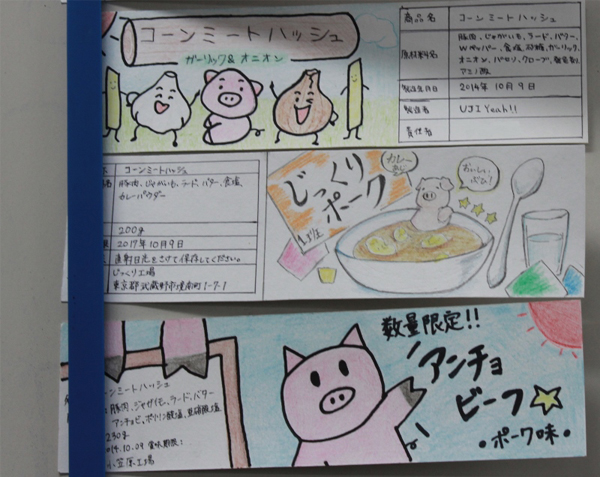 コーンミートハッシュ
ガーリック&オニオン
商品名
コーンミートハッシュ
原材料名
豚肉、じゃがいも、ラード、バター、
Wペッパー、食塩、砂糖、ガーリック、
オニオン、パセリ、クローブ、
アミノ酸
製造年月日
2014年10月9日
製造者
UJI Yeah!!
責任者
コーンミートハッシュ
豚肉、じゃがいも、ラード、バター、食塩、
カレーパウダー
200g
2017年10月9日
直射日光をさけて保存してください。
じっくり工場
東京都武蔵野市境南町1-7-1
じっくり
ポーク
カレー
あじ
おいしい
ぶひ!
コーンミートハッシュ
:豚肉、ジャガイモ、ラード、バター
アンチョビ、ポリリン酸塩、亜硝酸塩
230g
014.10.09 賞味期限:
小笠原工場
数量限定!!
アンチョ
ビーフ
•ポーク味•